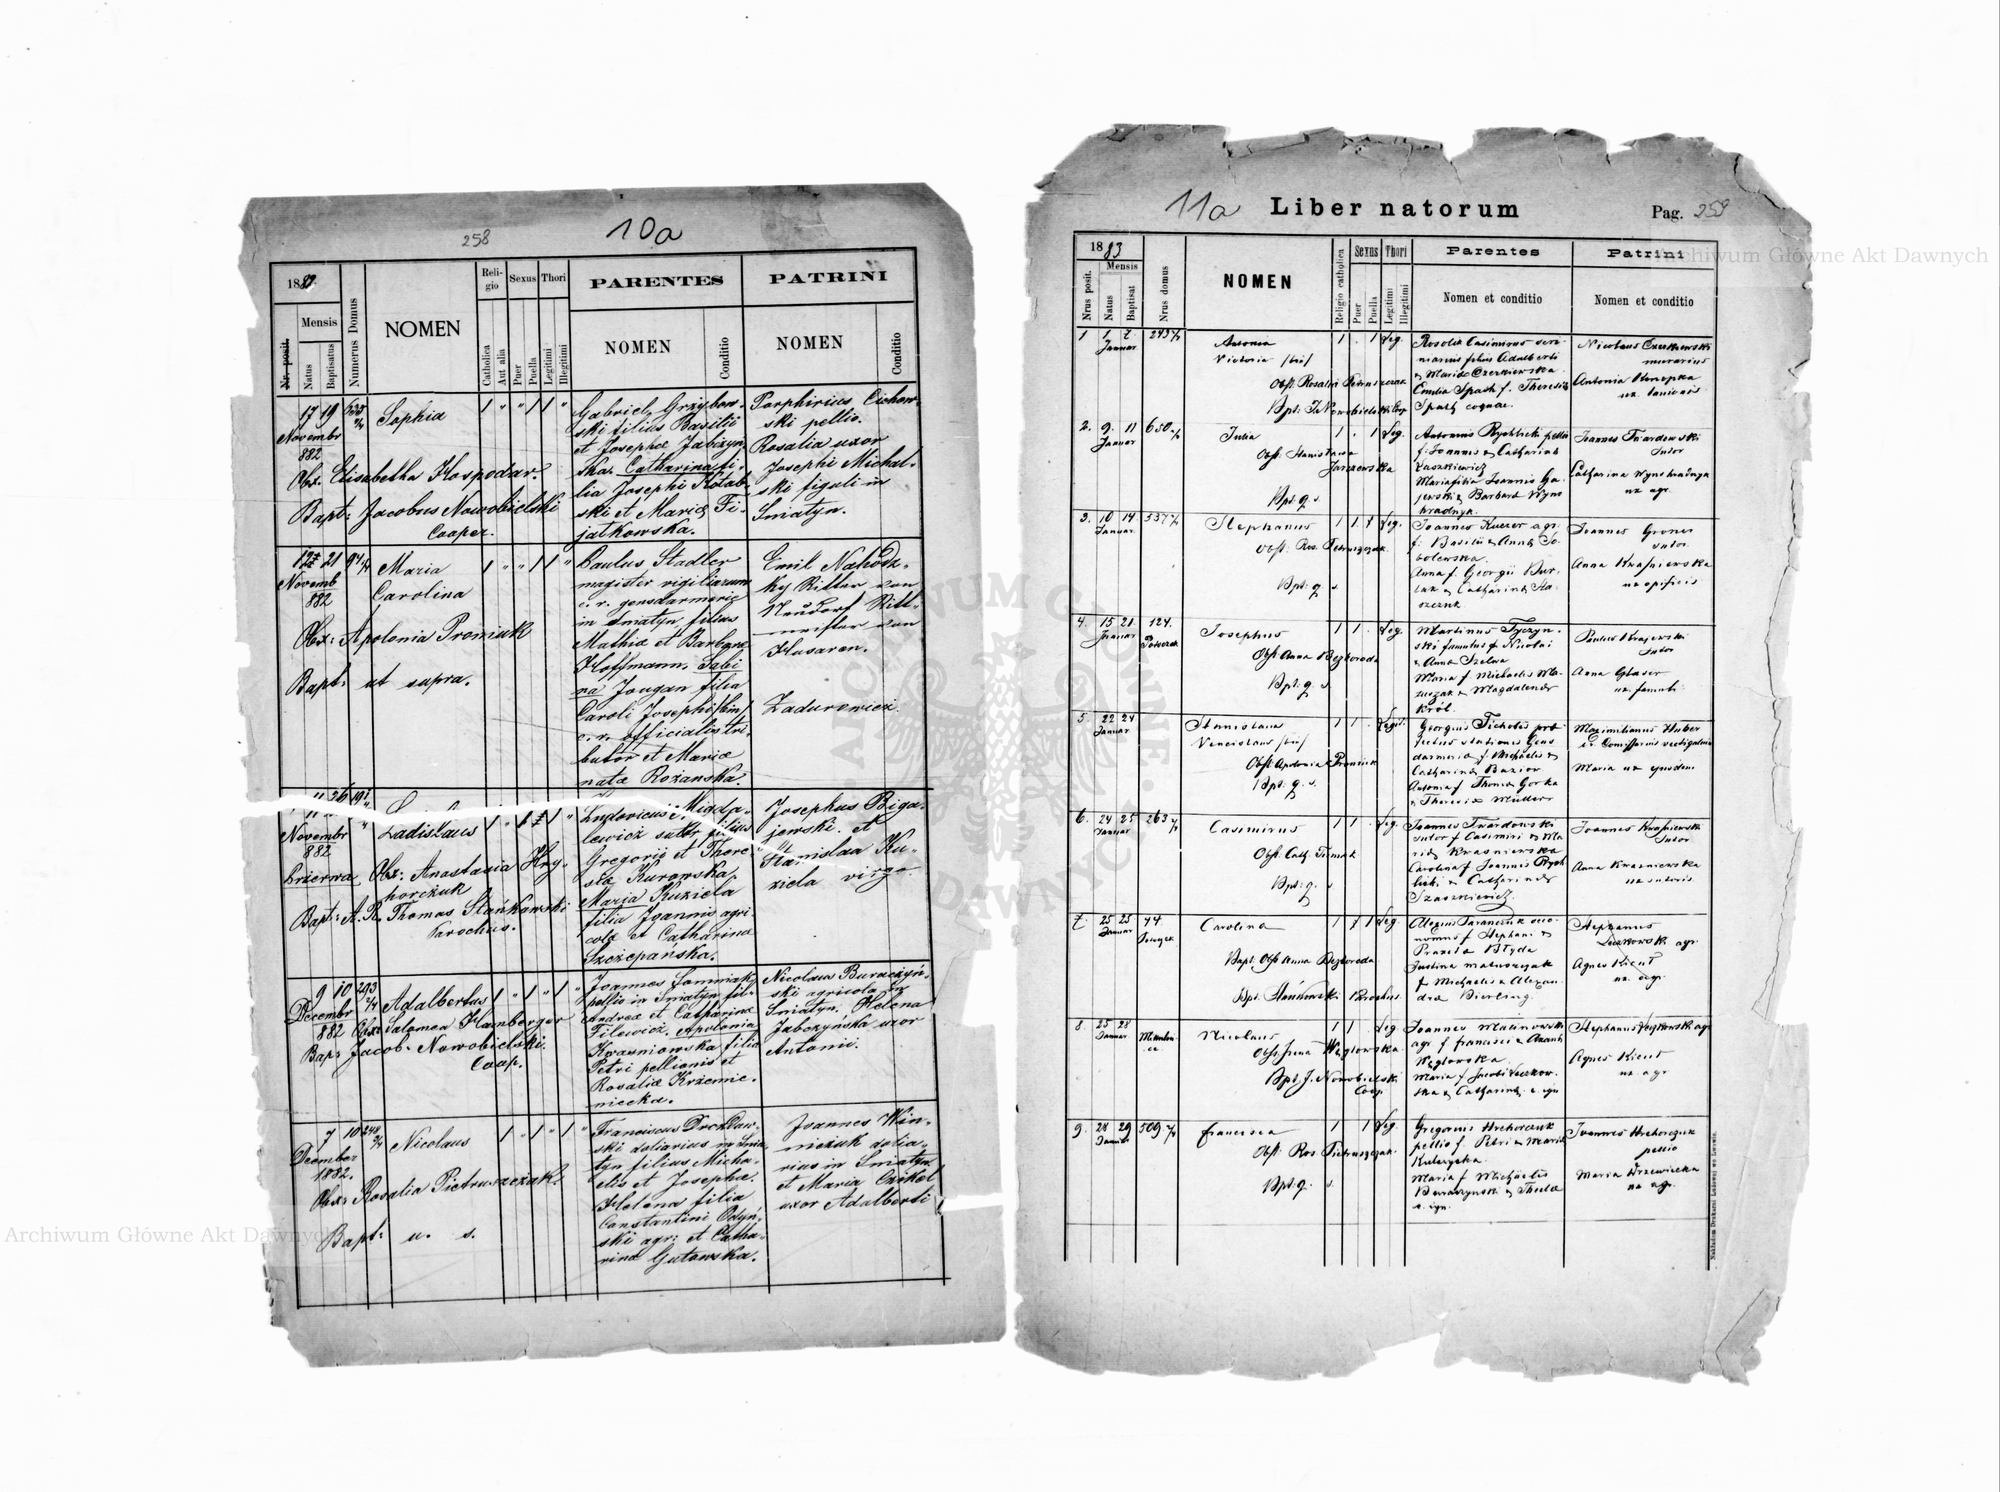 258
10a
1882
Mensis
Nr. posit.
Natus
Baptisatus
Numerus Domus
NOMEN
Reli-
gio
Sexus
Thori
Catholica
Aut alia
Puer
Puella
Legitimi
Illegitimi
PARENTES
NOMEN
Conditio
PATRINI
NOMEN
Conditio
17 19
Novembr
882
Sophia
Obst: Elisabetha Hospodar.
Bapt: Jacobus Nowobielski
Cooper.
Gabriel Grzybow-
ski filius Basilii
et Josephæ Jabczyn-
ska. Catharina fi-
lia Josephi Kolab-
ski et Mariæ Fi-
jatkowska.
Porphirius Cichow-
ski pellio.
Rosalia uxor
Josephi Michal-
ski figuli in
Sniatyn.
21
Novemb
882
Maria
Carolina
Obst: Apolonia Proniuk
Bapt: ut supra.
Paulus Stadler
magister vigiliarum
c. r. gensdarmeriæ
in Sniatyn filius
Mathiæ et Barbaræ
Hoffmann, Sabi-
na Jougan filia
Caroli Josephi /bin/
c. r. officialis tri-
butor et Mariæ
natæ Rożanska.
Emil Nahodz-
ky Ritter von
Neudorf Ritt-
meister von
Husaren.
Zadurowicz.
Novembr
882
Ladislaus
Obst: Anastasia Hry-
horczuk
Bapt: A. R. Thomas Stańkowski
Parochus.
Ludovicus Migdja-
lewicz sutor filius
Gregorii et There-
siæ Kurowska,
Maria Kuziela
filia Joannis agri-
colæ et Catharina
Szczepańska.
Josephus Biga-
jewski. et
Stanislaa Ku-
ziela virgo.
9 10 293
Decembr
882
Adalbertus
Obst: Salomea Hamberger
Bap: Jacob. Nowobielski.
Coop.
Joannes Somniak
pellio in Sniatyn fil-
Andreæ et Catharinæ
Filewicz, Apolonia
Kwasniowska filia
Petri pellionis et
Rosaliæ Krżemie-
niecka.
Nicolaus Buraczyń-
ski agricola in
Sniatyn. Helena
Jabczyńska uxor
Antonii.
7 10 248
December
1882.
Nicolaus
Obst: Rosalia Pietruszczak
Bapt: u. s.
Franciscus Drozdow-
ski doliarius in Snia-
tyn filius Micha-
elis et Josephæ.
Helena filia
Constantini Odyń-
ski agr: et Catha-
rina Gutowska.
Joannes Win-
niczuk dolia-
rius in Sniatyn.
et Maria Czikel
uxor Adalberti
11a
Liber natorum
Pag. 259
1883
Nrus posit.
Mensis
Natus
Baptisat
Nrus domus
NOMEN
Religio catholica
Sexus
Puer
Puella
Thori
Legitimi
Illegitimi
Parentes
Nomen et conditio
Patrini
Nomen et conditio
1
1 2
Januar
Antonia
Victoria /bin/
Obst. Rosalia Petruszczak
Bpt: J. Nowobielski Coop
Leg.
filius Adalberti
& Mariæ Czerkiewska
Emilia Spach f. Theresiæ
Spach coquae.
Nicolaus Czerkewski
murarius
Antonia Konopka
ux. lanionis
2.
9. 11
Januar
650
Julia
Obst. Stanislawa
Jarczewska
Bpt. q. s.
Leg.
Antonius Rychlicki pellio
f. Joannis & Catharinæ
Szaszkiewicz
Maria filia Joannis Ga-
jewski & Barbara Wyno-
hradnyk.
Joannes Twardowski
sutor
Catharina Wynohradnyk
ux. agr.
3.
10 14
Januar
537
Stephanus
Obst. Ros. Pietruszczak
Bpt. q. s.
Leg.
Joannes Kuczer agr.
f. Basilii & Annæ So-
bolewska
Anna f. Georgii Bur-
Joannes Groner
sutor
Anna Kwasniewska
ux opificis
4.
15 21
Januar
124.
Potoczek
Josephus
Obst. Anna Bezboroda
Bpt. q. s.
Leg.
Martinus Tyczyn-
ski famulus f. Nicolai
& Anna Szelwa
Maria f. Michaelis Ma-
zuszak & Magdalenæ
Król.
Paulus Krajewski
sutor
Anna Glaser
ux. famuli
5.
22 24
Januar
Stanislaus
Venceslaus /bin/
Obst. Apolonia Proniuk
Bpt. q. s.
Legit.
Georgius Ticholis præ-
fectus stationis Gens-
darmeriæ f. Michaelis &
Catharinæ Bazior
Antonia f. Thomæ Gorka
& Theresiæ Müller
Maximilianus Huber
c.r. Comissarius vectigalium
Maria ux ejusdem
6.
24 25
Januar
263
Casimirus
Obst. Cath. Tusnak
Bpt. q. s.
Leg.
Joannes Twardowski
sutor f. Casimiri & Ma-
riæ Kwasniewska
Carolina f. Joannis Rych-
licki & Catharinæ
Szaszkiewicz
Joannes Kwasniewski
sutor.
Anna Kwasniewska
ux sutoris
7.
25 25
Januar
44
Carolina
Bapt. Obst Anna Bezboroda
Bpt. Stańkowski Parochus.
Leg
Alexius Taranczuk œco-
nomus f. Stephani &
Justina Matwiszczak
f. Michaelis & Alexan-
dra Bierling.
Stephanus
Leszkowski agr.
Agnes Kicut
ux. agr.
8.
25 28
Januar
Nicolaus
Obst. Irena Węglowska
Bpt. J. Nowobielski
Coop.
Leg
Joannes Malinowski
agr. f. Francisci &
Węglowska.
Maria f. Jacobi Leszkow-
ska & Catharinæ e. ign
Stephanus Leszkowski agr
Agnes Kicut
ux. agr.
9.
28 29
Januar
509
Francisca
Obst. Ros. Pietruszczak
Bpt. q. s.
Leg.
Gregorius Hrehorczuk
pellio f. Petri & Mariæ
Kulczycka.
Maria f. Michaelis
Buraczynski & Theclæ
e. ign.
Joannes Hrehorczuk
pellio
Maria Wrzewiecka
ux agr.
Nakładem Drukarni Ludowej we Lwowie.
Archiwum Główne Akt Dawnych
Archiwum Główne Akt Dawnych
ARCHIWUM GŁÓWNE AKT DAWNYCH